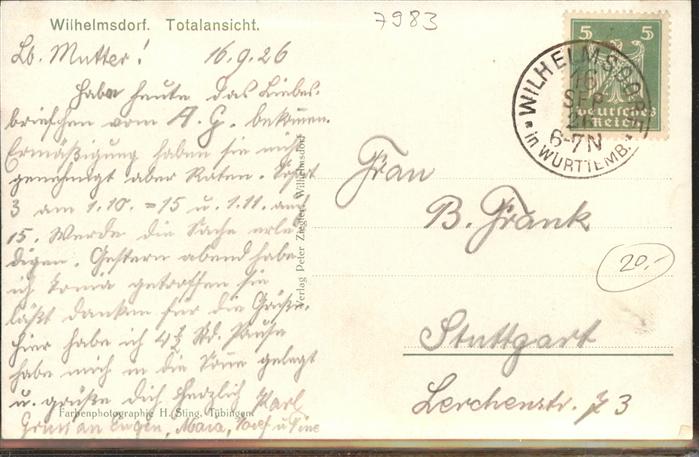 7983
Wilhelmsdorf. Totalansicht.
Lb. Mutter! 16.9.26
Habe heute das Liebes-
briefchen vom A.G. bekommen.
Ermäßigung haben sie nicht
genehmigt aber Raten.
3 am 1.10. = 15 u. 1.11. auf
15. Werde die Sache erle-
digen. Gestern abend habe
ich getroffen sie
läßt danken für die Grüße.
Hier habe ich 4½ Std. Pause
habe mich in die Sonne gelegt
u. grüße dich herzlich Karl
Gruss an Eugen, Maria, Josef u.
Verlag Peter Ziegler, Wilhelmsdorf
Farbenphotographie H. Sting, Tübingen.
5 5
Deutsches
Reich
WILHELMSDORF
16
SEP
26
6-7N
in WÜRTTEMB.
Frau
B. Frank
20.-
Stuttgart
Lerchenstr. 73